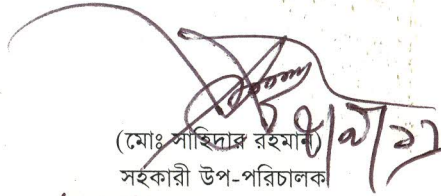 (মোঃ সাহিদার রহমান)
সহকারী উপ-পরিচালক